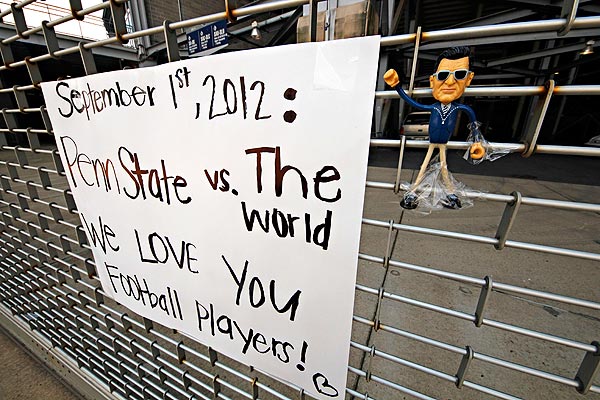 September 1st, 2012:
Penn State vs. The
World
We LOVE You
Football Players!